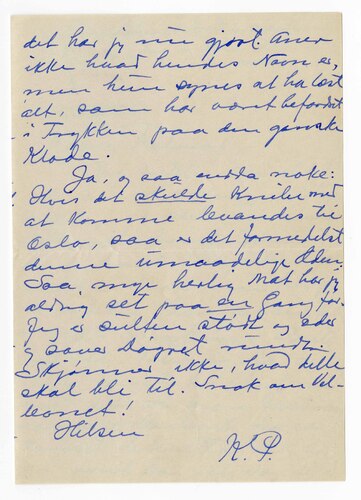 det har jeg nu gjort. Aner
ikke hvad hendes Navn er,
men hun synes at ha læst
alt, som har været befordret
i Trykken paa den ganske
Klode.
Ja, og saa endda noke:
Hvis det skulde knibe med
at komme levandes til
Oslo, saa er det formedelst
denne umaadelige Æden.
Saa mye herlig Mat har jeg
aldrig set paa en Gang før.
Jeg er sulten støtt og eder
og sover Døgnet rundt.
Skjønner ikke, hvad dette
skal bli til. Snak om Vel-
levnet!
Hilsen
K. P.